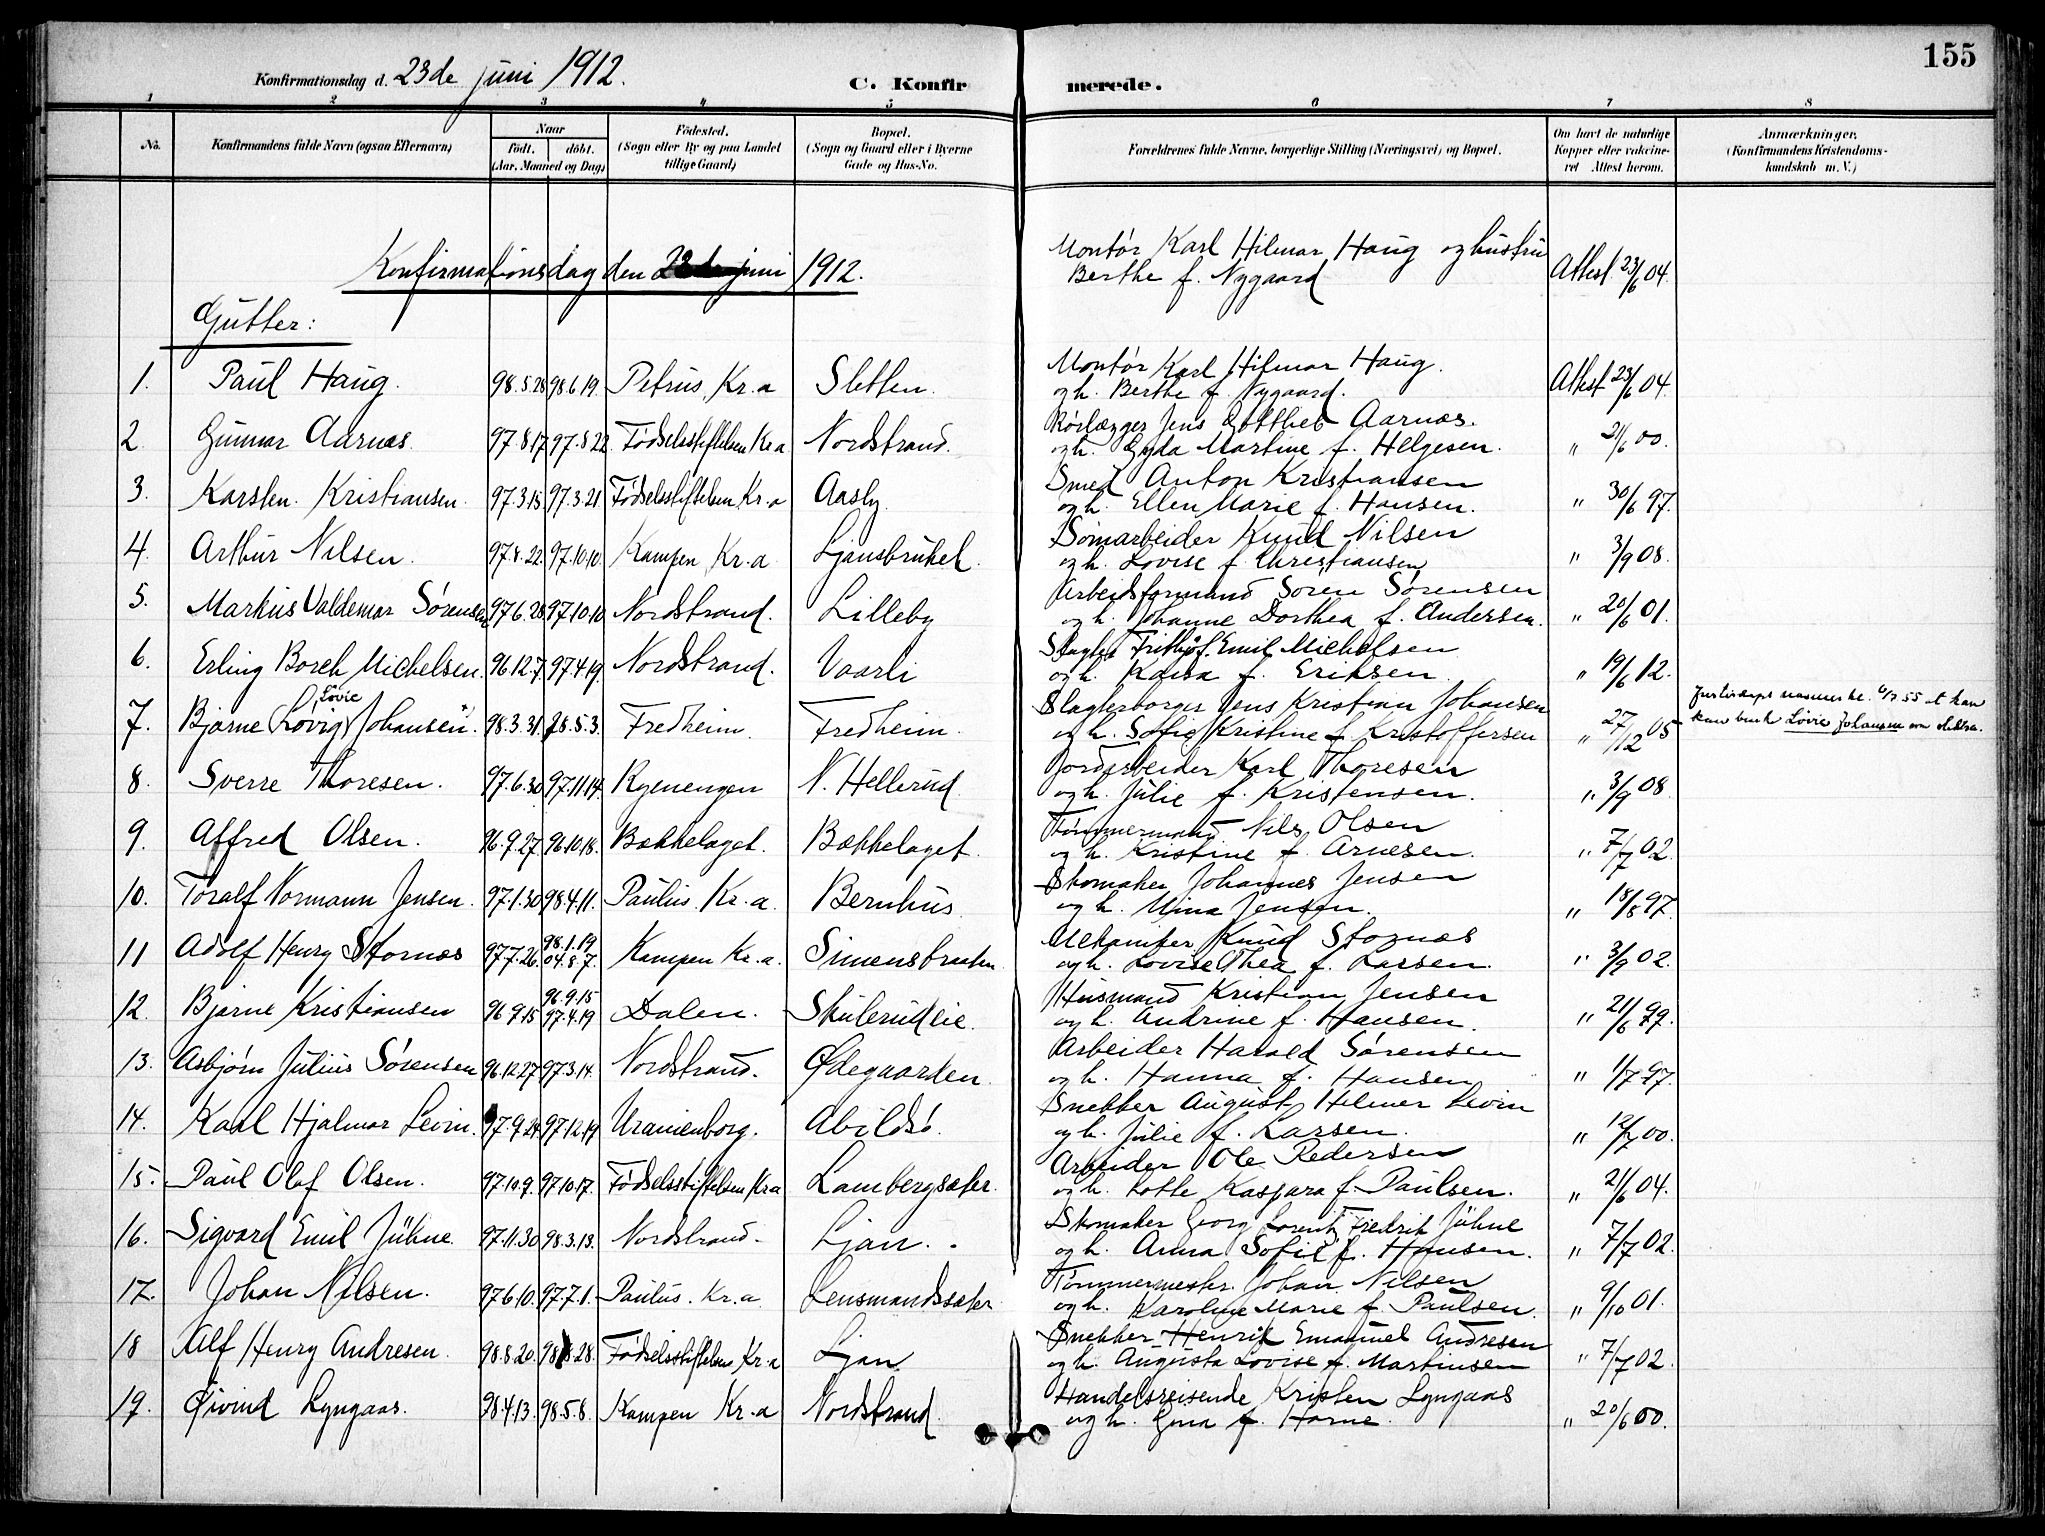 155
Konfirmationsdag d. 23de juni 1912.
C. Konfirmerede.
1 2 3 4 5 6 7 8
No.
Konfirmandens fulde Navn (ogsaa Efternavn)
Naar
født. døbt.
(Aar, Maaned og Dag)
Fødested.
(Sogn eller By og paa Landet
tillige Gaard)
Bopæl.
(Sogn og Gaard eller i Byerne
Gade og Hus-No.
Forældrenes fulde Navne, borgerlige Stilling (Næringsvei) og Bopæl.
Om havt de naturlige
Kopper eller vakcine-
ret Attest herom.
Anmærkninger.
(Konfirmandens Kristendoms-
kundskab m. V.)
Konfirmationsdag den 23de juni 1912.
Montör Karl Hilmar Haug og hustru
Berthe f. Nygaard Attest 23/6 04.
Gutter:
1. Paul Haug. 98.5.28 98.6.19. Petrus, Kr.a Sletten. Montör Karl Hilmar Haug.
og h. Berthe f. Nygaard. Attest 23/6 04.
2. Gunnar Aarnæs. 97.8.17 97.8.22 Fødselsstiftelsen Kr.a Nordstrand. Rørlægger Jens Gottlieb Aarnæs.
og h. Gyda Martine f. Helgesen. " 21/6 00.
3. Karsten Kristiansen. 97.3.15 97.3.21 Fødselsstiftelsen Kr.a Aasly. Smed Anton Kristiansen
og h. Ellen Marie f. Hansen. " 30/6 97.
4. Arthur Nilsen. 97.8.22. 97.10.10. Kampen Kr.a Ljansbruket. Knud Nilsen
og h. Lovise f. Christiansen " 3/9 08.
5. Markus Valdemar Sørensen 97.6.28 97.10.10 Nordstrand. Lilleby Arbeidsformand Sören Sörensen
og h. Johanne Dorthea f. Andersen. " 20/6 01.
6. Erling Borch Michelsen. 96.12.7. 97.4.19. Nordstrand. Vaarli Slagter Emil Michelsen
og h. Kaisa f. Eriksen. " 19/6 12.
7. Bjarne Lovig Løvie Johansen. 98.3.31. 98.5.3. Fredheim. Fredheim. Jens Kristian Johansen
og h. Sofie Kristine f. Kristoffersen " 27/12 05
Løvie Johansen
8. Sverre Thoresen. 97.6.30 97.11.14. Ryenengen N. Hellerud. Jordarbeider Karl Thoresen
og h. Julie f. Kristensen. " 3/9 08.
9. Alfred Olsen. 96.9.27. 96.10.18. Bækkelaget. Bækkelaget. Tömmermand Nils Olsen
og h. Kristine f. Arnesen. " 7/7 02.
10. Toralf Normann Jensen. 97.1.30 98.4.11. Paulus. Kr.a. Bernhus Skomaker Johannes Jensen
og h. Mina Jensen. " 18/8 97.
11 Adolf Henry Stornæs 97.7.26. 98.1.19 04.8.7. Kampen Kr.a. Simensbraaten Mekaniker Knud Stornæs
og h. Lovise Thea f. Larsen. " 3/9 02.
12. Bjarne Kristiansen 96.9.15 96.9.15 97.4.19 Dalen. Skulerudeie. Husmand Kristian Jensen
og h. Andrine f. Hansen. " 21/6 99.
13. Asbjørn Julius Sørensen 96.12.27. 97.3.14. Nordstrand. Ødegaarden. Arbeider Harald Sørensen
og h. Hanna f. Hansen " 1/7 97.
14. Karl Hjalmar Levin. 97.9.24 97.12.19 Uranienborg. Abildsø. Snekker August Helmer Levin
og h. Julie f. Larsen. " 12/7 00.
15. Paul Olaf Olsen. 97.10.9. 97.10.17. Fødselsstiftelsen Kr.a Lambergsæter. Arbeider Ole Pedersen
og h. Lotte Kaspara f. Paulsen. " 21/6 04.
16. Sigvard Emil Jühne. 97.11.30 98.3.13. Nordstrand. Ljan. Skomaker Georg Lorentz Fredrik Jühne
og h. Anna Sofie f. Hansen. " 7/7 02.
17. Johan Nilsen. 97.6.10. 97.7.1. Paulus. Kr.a Lensmandssæter Tömmermester Johan Nilsen
og h. Karoline Marie f. Paulsen. " 9/10 01.
18 Alf Henry Andresen. 98.8.20. 98.8.28. Fødselsstiftelsen Kr.a Ljan Snekker Henrik Emanuel Andresen
og h. Augusta Lovise f. Martinsen " 7/7 02.
19. Øivind Lyngaas. 98.4.13. 98.5.8. Kampen Kr.a Nordstrand. Handelsreisende Kristen Lyngaas
og h. Gina f. Horne. " 20/6 00.